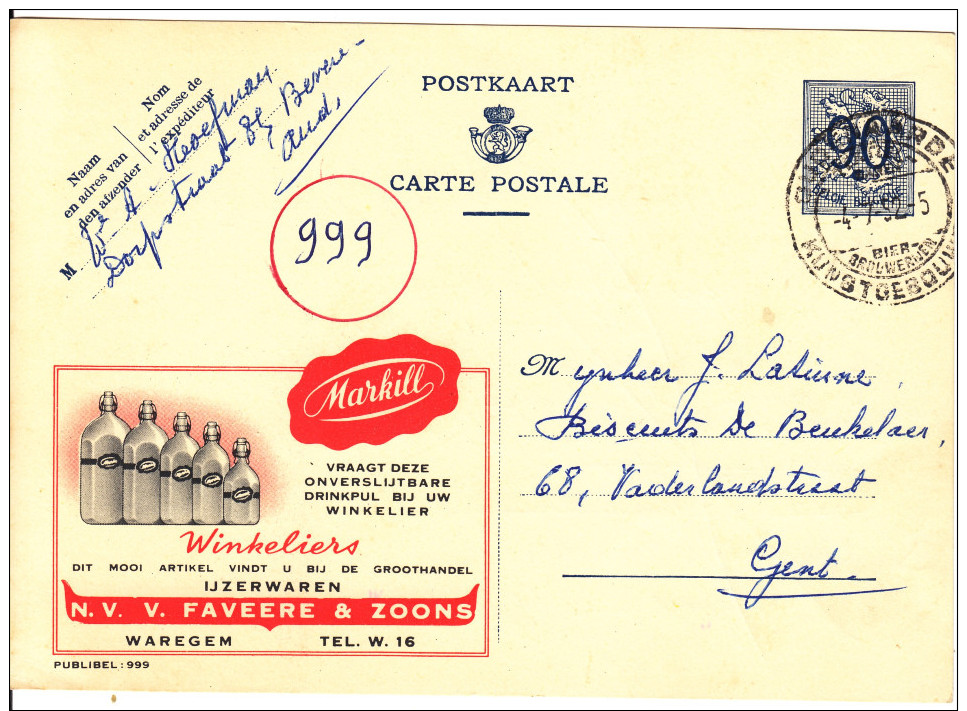 POSTKAART
CARTE POSTALE
Nom
et adresse de
l'expéditeur
Naam
en adres van
den afzender
M
Dorpstraat 89
Bevere
Aud.
999
90
BELGIE BELGIQUE
-4-7-52-5
BIER-
BROUWERIJEN
KUNSTGEBOUW
Mynheer J.
Biscuits De Beukelaer,
68, Vaderlandstraat
Gent
Markill
VRAAGT DEZE
ONVERSLIJTBARE
DRINKPUL BIJ UW
WINKELIER
Winkeliers
DIT MOOI ARTIKEL VINDT U BIJ DE GROOTHANDEL
IJZERWAREN
N.V. V. FAVEERE & ZOONS
WAREGEM TEL. W. 16
PUBLIBEL: 999